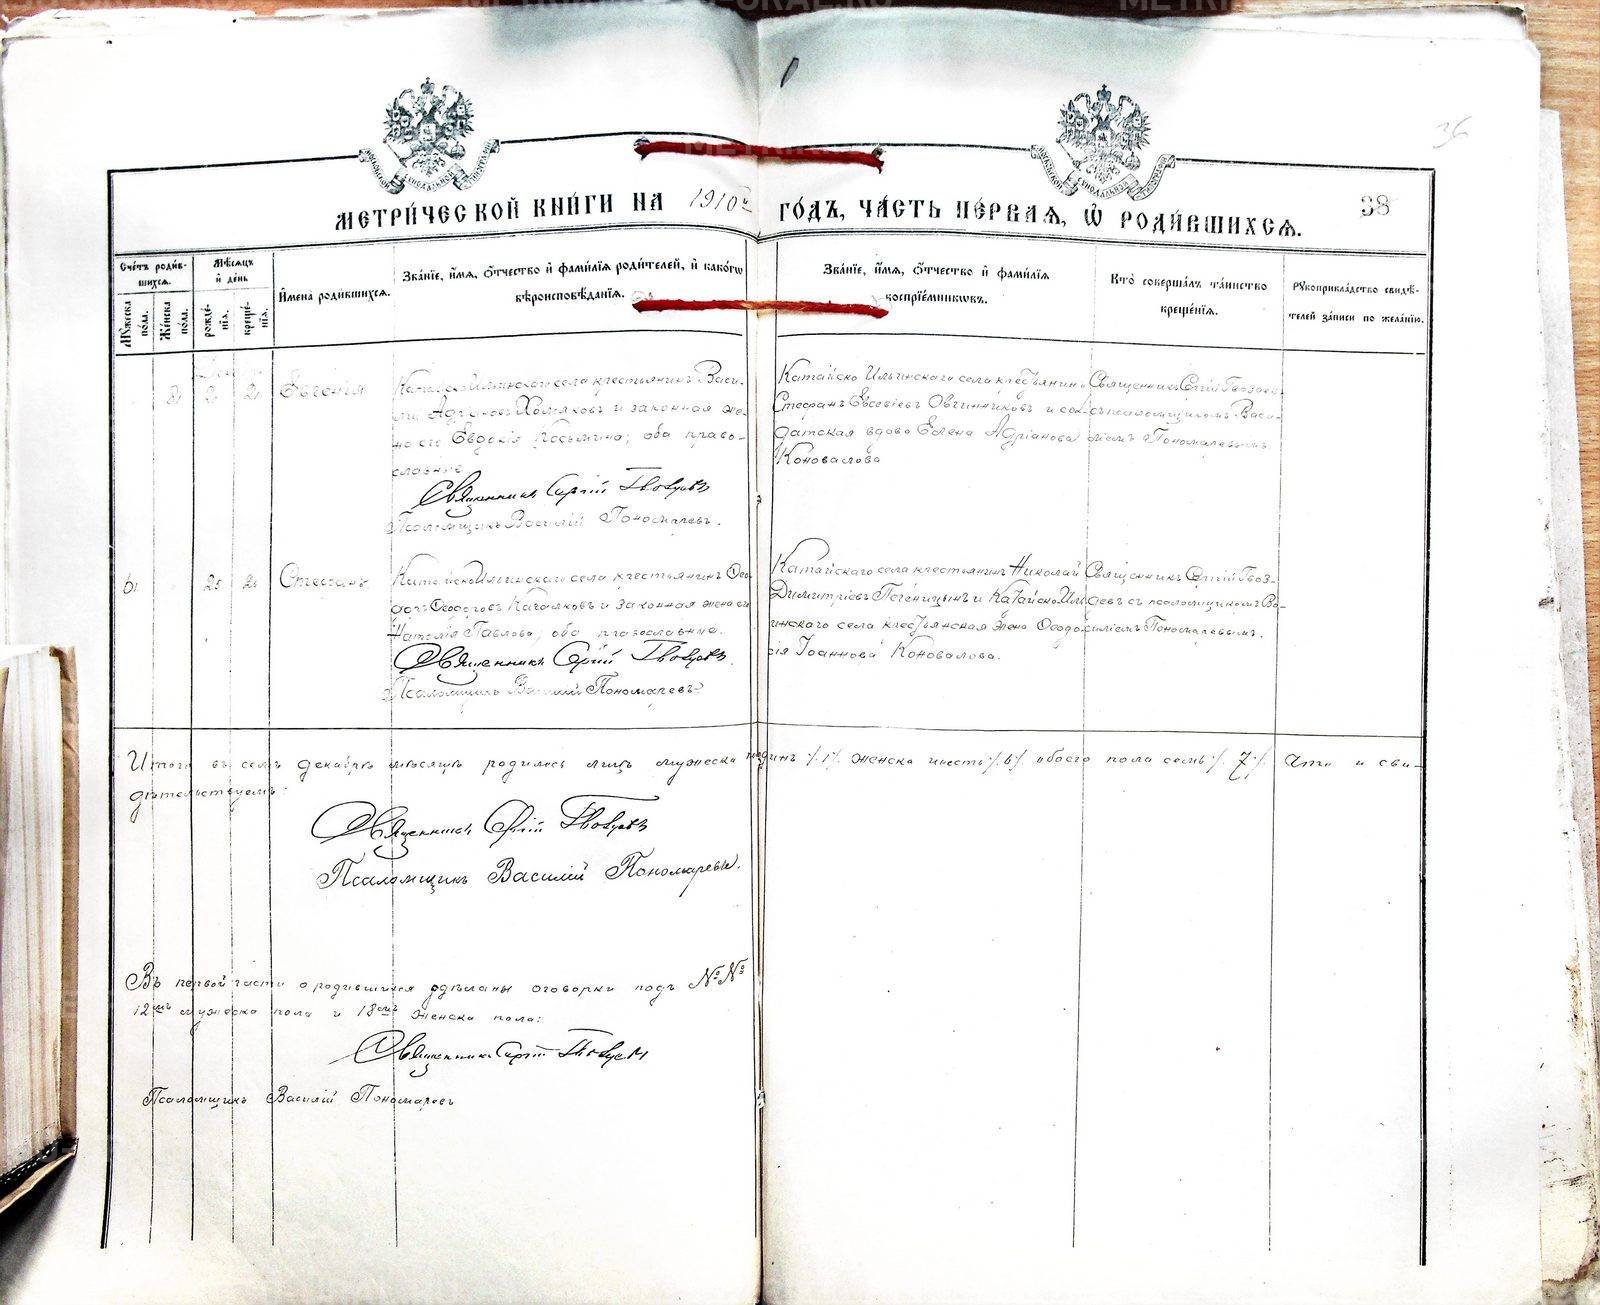 36
38
МЕТРИ́ЧЕСКОЙ КНИ́ГИ НА 1910й ГО́ДЪ, ЧА́СТЬ ПЕ́РВАѦ, Ѽ РОДИ́ВШИХСѦ.
Сче́тъ роди́в-
шихся.
Мѣ́сяцъ
и день
Му́жеска по́ла.
Же́нска по́ла.
рожде́-
нія.
креще́-
нія.
И́мена роди́вшихся.
Зва́нїе, и́мя, ѻ́тчество и фами́лїя роди́телей, и како́гѡ
вѣроисповѣ́данїя.
Зва́нїе, и́мя, ѻ́тчество и фами́лїя
воспрїе́мникѡвъ.
Кто̀ соверша́лъ та́инство
креще́нїя.
Рукоприкла́дство свидѣ́-
телей за́писи по жела́нїю.
Евгенія
Катайско Ильинскаго села крестьянинъ Васи-
лій Адріановъ Хомяковъ и законная же-
на его Евдокія Косьмина; оба право-
славные
Священникъ Сергій Гвоздевъ
Псаломщикъ Василій Пономаревъ.
Катайско Ильинскаго села крестьянинъ
Стефанъ Евсевіевъ Овчинниковъ и сол-
датская вдова Елена Адріанова
Коновалова
Священникъ Сергій Гвоздевъ
съ псаломщикомъ Васи-
ліемъ Пономаревымъ
Стефанъ
Катайско Ильинскаго села крестьянинъ Ѳео-
доръ Ѳеодоровъ и законная жена его
Наталія Павлова, оба православные.
Священникъ Сергій Гвоздевъ.
Псаломщикъ Василій Пономаревъ
Катайскаго села крестьянинъ Николай
Димитріевъ и Катайско Иль-
инскаго села крестьянская жена Ѳеодо-
сія Іоаннова Коновалова.
Священникъ Сергій Гвоз-
девъ съ псаломщикомъ Ва-
силіемъ Пономаревымъ.
Итого въ семъ декабрѣ мѣсяцѣ родилось лицъ мужеска одинъ /.1./. женска шесть /.6./ обоего пола семь /. 7 /. Что и сви-
дѣтельствуемъ:
Священникъ Сергій Гвоздевъ
Псаломщикъ Василій Пономаревъ.
Въ первой части о родившихся сдѣланы оговорки подъ №№
12мъ мужеска пола и 18мъ женска пола:
Священникъ Сергій Гвоздевъ
Псаломщикъ Василій Пономаревъ